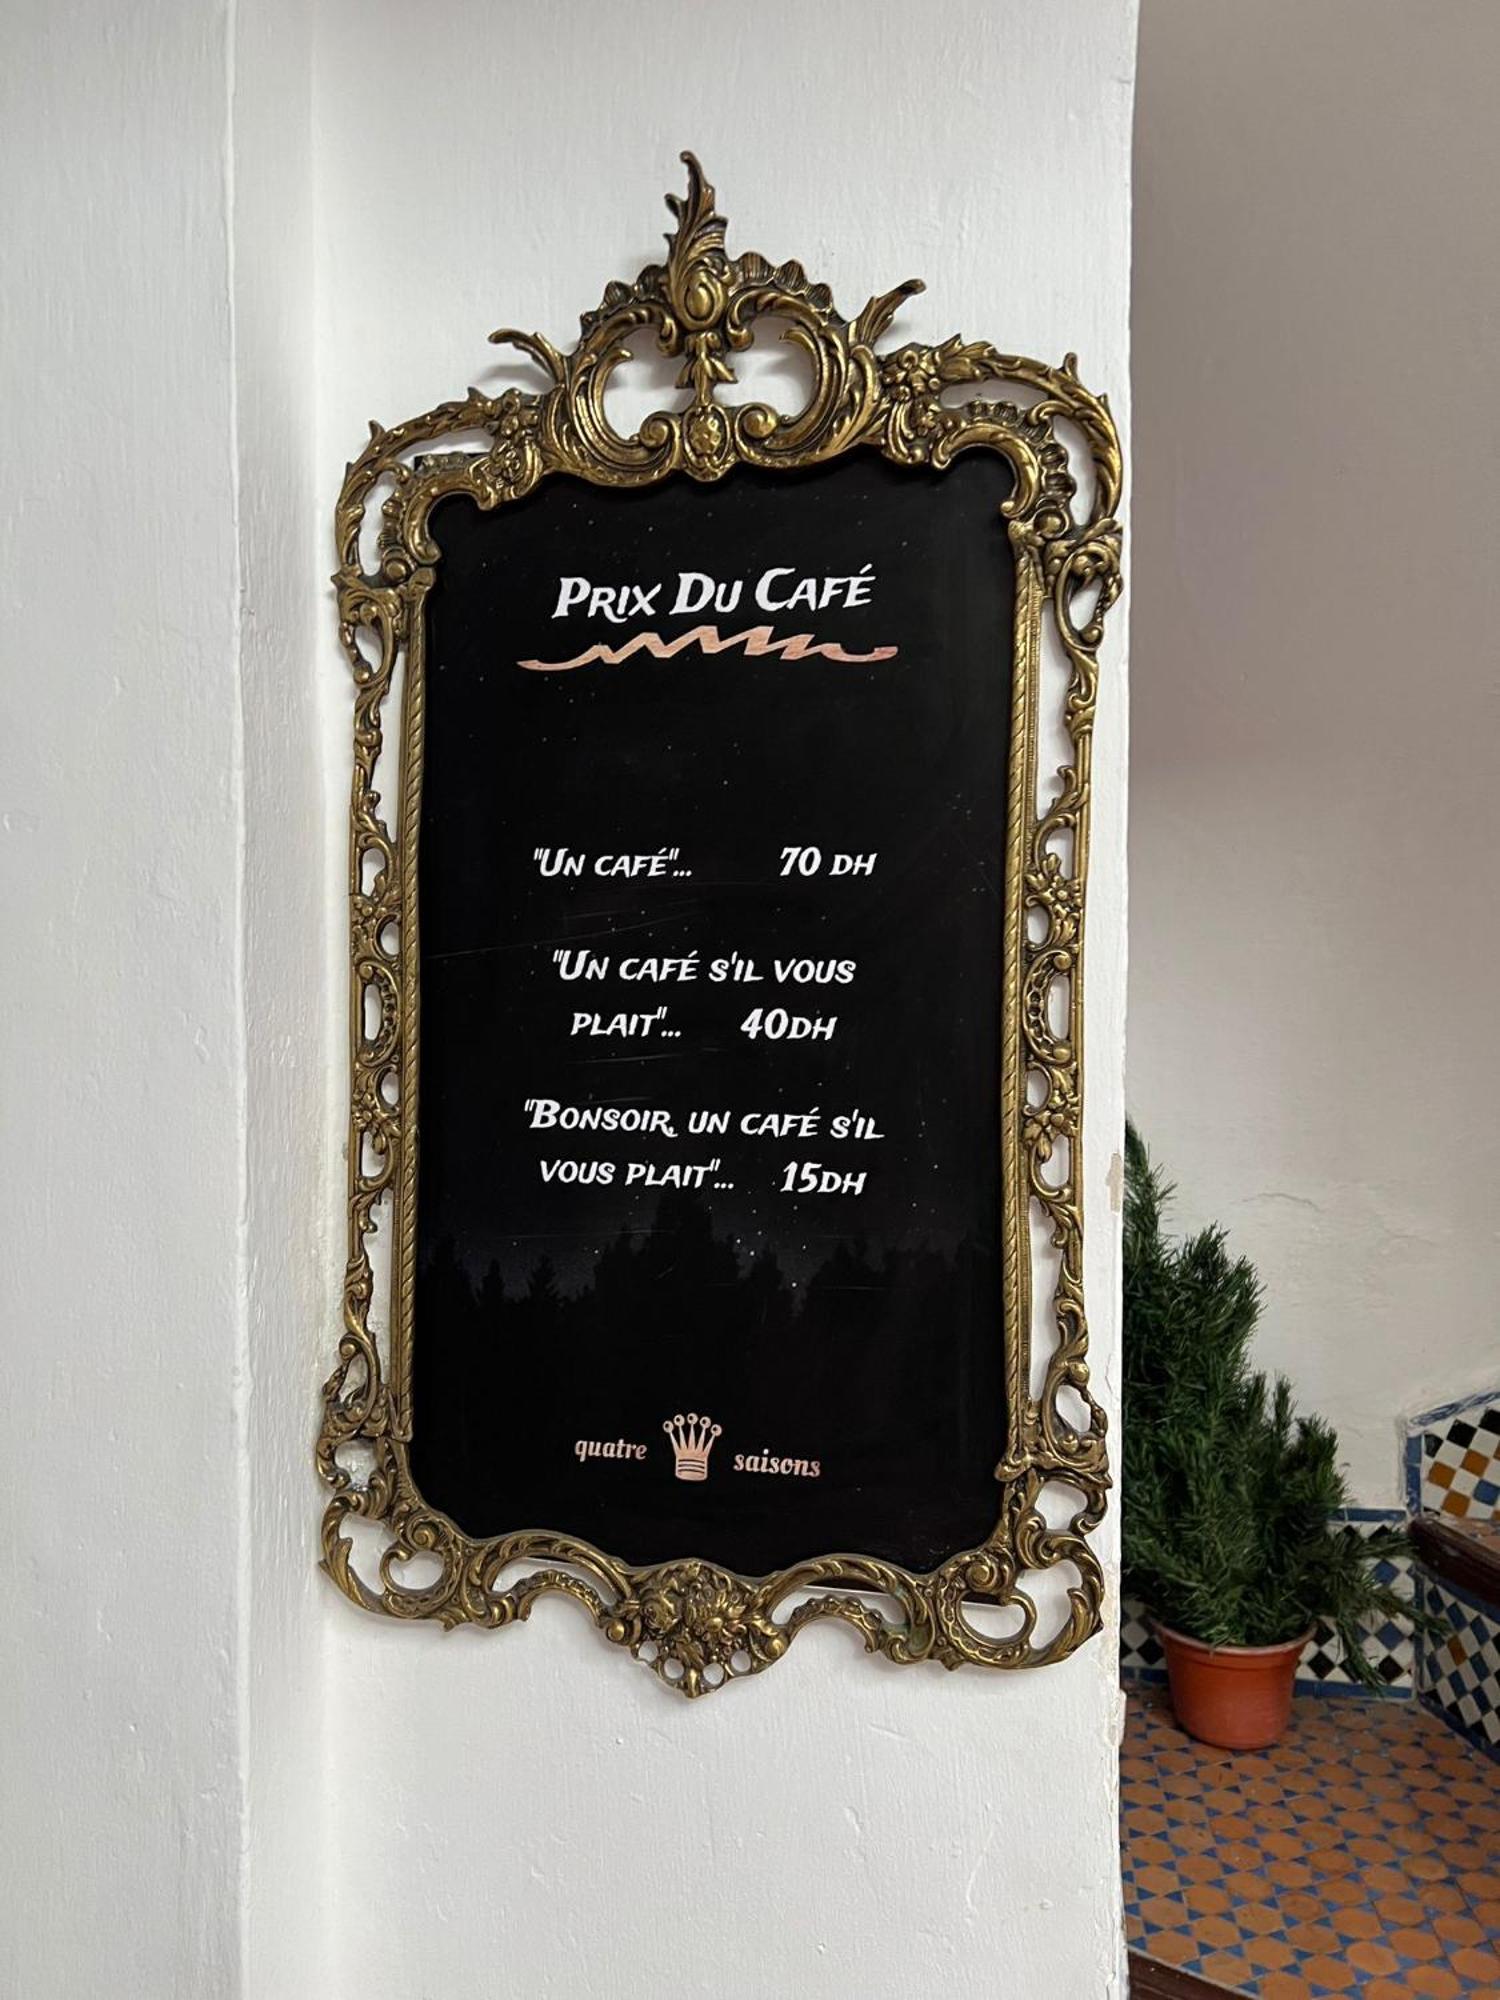 Prix Du Café
"Un café"... 70 DH
"Un café s'il vous
plait"... 40DH
"Bonsoir, un café s'il
vous plait"... 15DH
quatre saisons